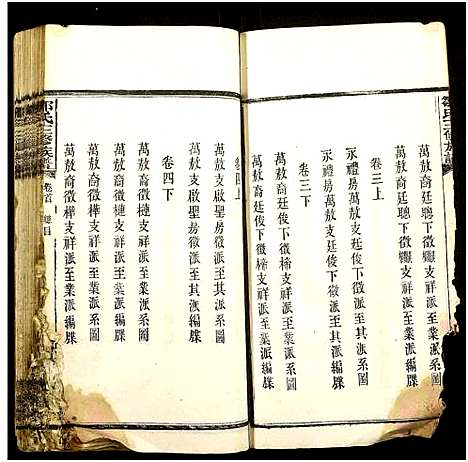 萬敖裔廷聰下徵
支祥派至業派系圖
萬敖裔廷聰下徵
支祥派至業派編牒
卷三上
永禮房萬敖支廷俊下徵至其派系圖
永禮房萬敖支廷俊下徵至其派編牒
卷三下
萬敖裔廷俊下徵楴支祥派至業派系圖
萬敖裔廷俊下徵楴支祥派至業派編牒
卷四上
萬敖支啟聖房徵派至其派系圖
萬敖支啟聖房徵派至其派編牒
卷四下
萬敖裔徵槤支祥派至業派系圖
萬敖裔徵槤支祥派至業派編牒
萬敖裔徵樺支祥派至業派系圖
萬敖裔徵樺支祥派至業派編牒
氏三修族譜
卷首
總目